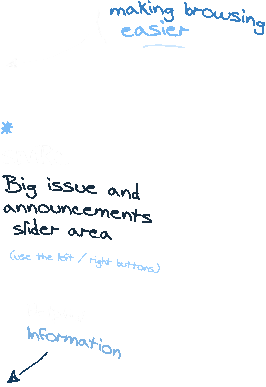 making browsing
easier
*
Big issue and
announcements
slider area
(use the left / right buttons)
Information